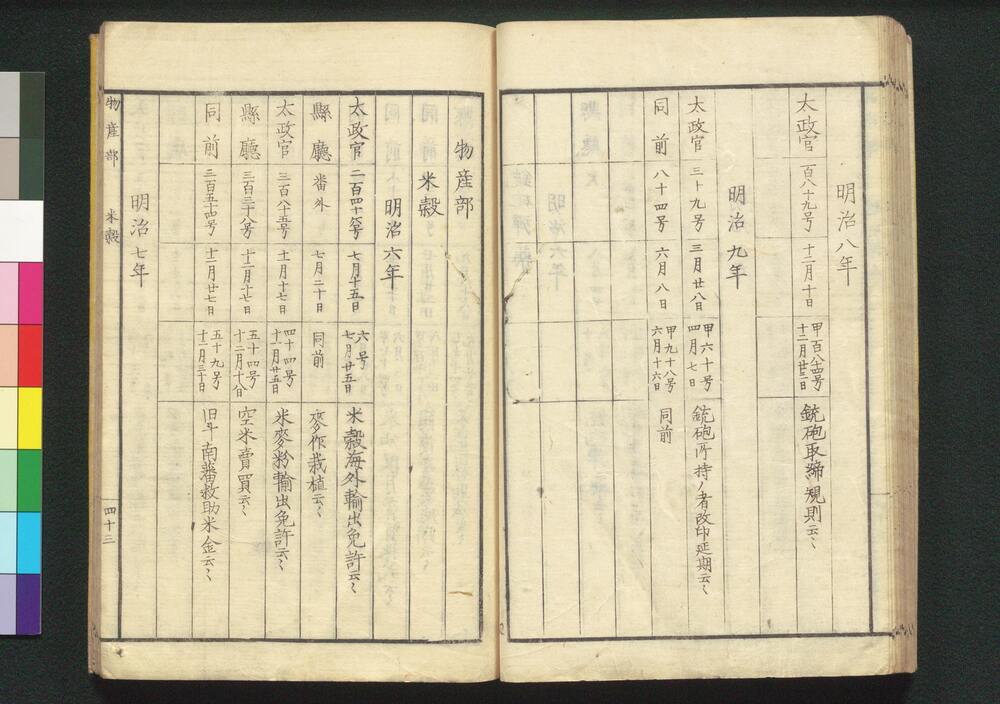 明治八年
太政官 百八十九号 十二月十日 甲百八十四号 十二月廿三日 銃砲取締規則云々
明治九年
太政官 三十九号 三月廿八日 甲六十号 四月七日 銃砲所持ノ者改印延期云々
同前 八十四号 六月八日 甲九十八号 六月十六日 同前
物産部
米穀
明治六年
太政官 二百四十六号 七月十五日 六号 七月廿五日 米穀海外輸出免許云々
縣廳 番外 七月二十日 同前 麥作栽植云々
太政官 三百八十五号 十一月十七日 四十四号 十一月廿五日 米麥粉輸出免許云々
縣廳 三百三十八号 十二月十七日 五十四号 十二月十八日 空米賣買云々
同前 三百五十四号 十二月廿七日 五十九号 十二月三十日 旧斗南藩救助米金云々
明治七年
物産部 米穀
四十三